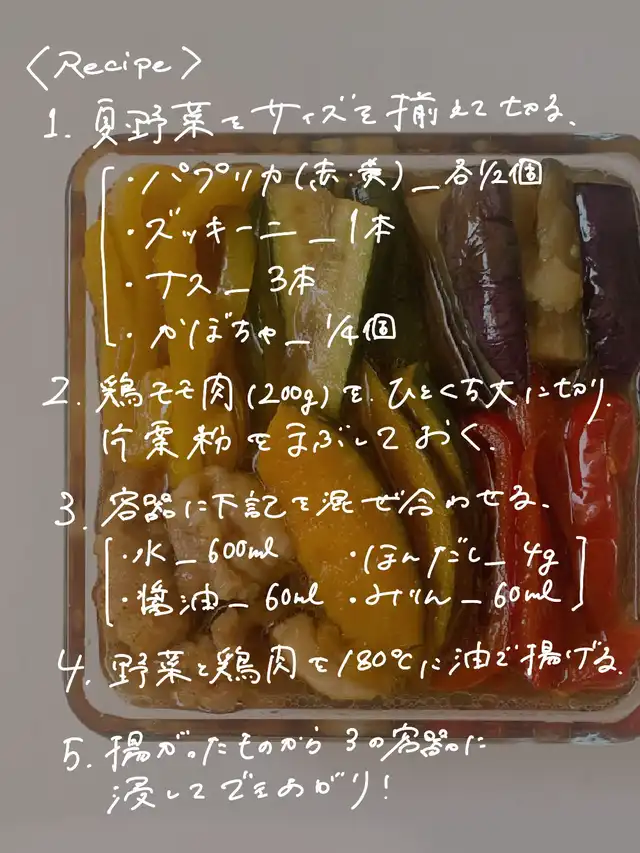 〈Recipe〉
1. 夏野菜をサイズを揃えて切る.
・パプリカ(赤・黄)_各1/2個
・ズッキーニ_1本
・ナス_3本
・かぼちゃ_1/4個
2. 鶏モモ肉(200g)を.ひとくち大に切り.
片栗粉をまぶしておく.
3. 容器に下記を混ぜ合わせる.
・水_600ml ・ほんだし_4g
・醤油_60ml ・みりん_60ml
4. 野菜と鶏肉を180℃に油で揚げる.
5. 揚がったものから3の容器に
浸してできあがり!